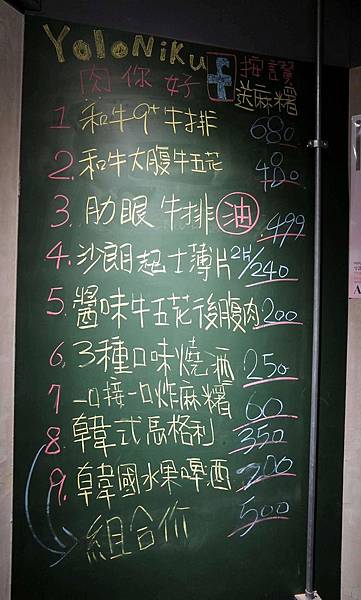 YoloNiku f 按讚
肉你好 送麻糬
1. 和牛9+牛排 680
2. 和牛大腹牛五花 480
3. 肋眼牛排 油 499
4. 沙朗起士薄片 2片/240
5. 醬味牛五花後腹肉 200
6. 3種口味燒酒 250
7 一口接一口炸麻糬 60
8. 韓式馬格利 350
9. 韓國水果啤酒 200
組合价 500